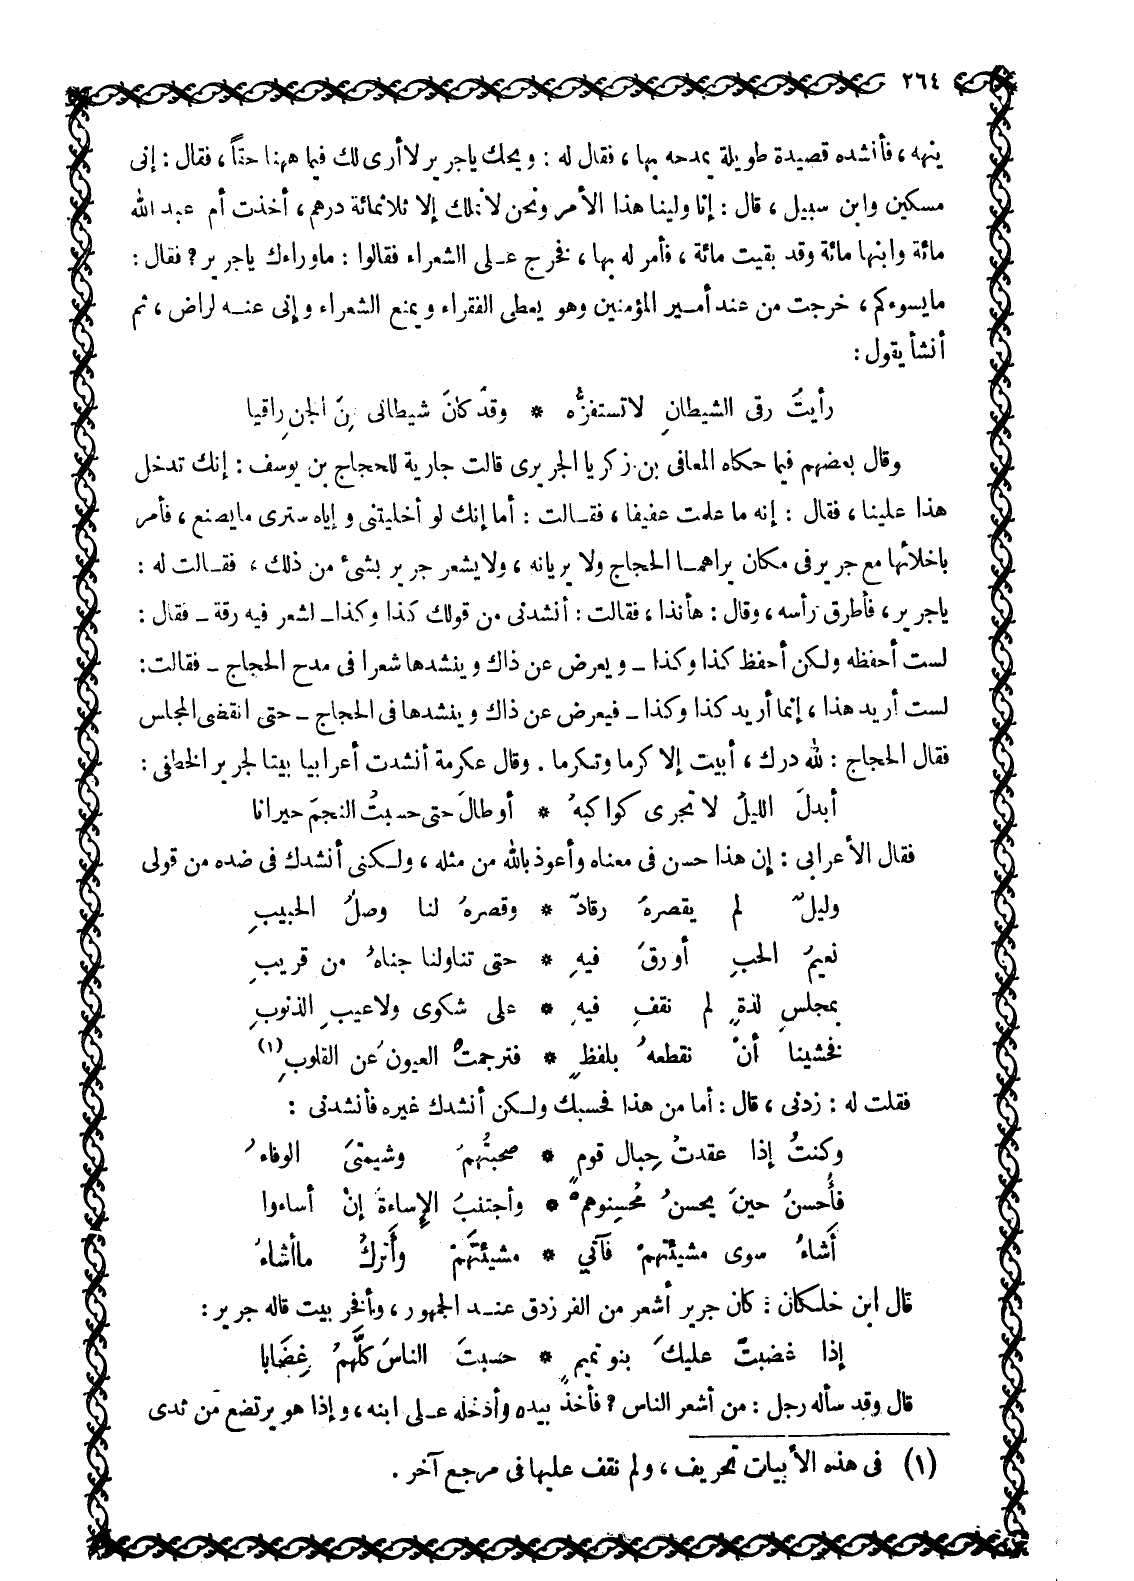 ٢٦٤
ينهه ، فأنشده قصيدة طويلة يمدحه بها ، فقال له : ويحك ياجرير لاأرى لك فيما ههنا حقاً ، فقال : إنى
مسكين وابن سبيل ، قال : إنا ولينا هذا الأمر ونحن لانملك إلا ثلاثمائة درهم ، أخذت أم عبد الله
مائة وابنها مائة وقد بقيت مائة ، فأمر له بها ، فخرج على الشعراء فقالوا : ماوراءك ياجرير ؟ فقال :
مايسوءكم ، خرجت من عند أمير المؤمنين وهو يعطى الفقراء ويمنع الشعراء وإنى عنه لراض ، ثم
أنشأ يقول :
رأيتُ رقى الشيطانِ لاتستفزُّه * وقد كانَ شيطانى مِنَ الجنِ راقيا
وقال بعضهم فيما حكاه المعافى بن زكريا الجريرى قالت جارية للحجاج بن يوسف : إنك تدخل
هذا علينا ، فقال : إنه ما علمت عفيفا ، فقالت : أما إنك لو أخليتنى وإياه سترى مايصنع ، فأمر
باخلائها مع جرير فى مكان يراهما الحجاج ولا يريانه ، ولايشعر جرير بشىء من ذلك ، فقالت له :
ياجرير ، فأطرق رأسه ، وقال : هأنذا ، فقالت : أنشدنى من قولك كذا وكذا ـ لشعر فيه رقة ـ فقال :
لست أحفظه ولكن أحفظ كذا وكذا ـ ويعرض عن ذاك وينشدها شعرا فى مدح الحجاج ـ فقالت :
لست أريد هذا ، إنما أريد كذا وكذا ـ فيعرض عن ذاك وينشدها فى الحجاج ـ حتى انقضى المجلس
فقال الحجاج : لله درك ، أبيت إلا كرما وتكرما . وقال عكرمة أنشدت أعرابيا بيتا لجرير الخطفى :
أبدلَ الليلُ لا تجرى كواكبهُ * أو طالَ حتى حسبتُ النجمَ حيرانا
فقال الأعرابى : إن هذا حسن فى معناه وأعوذ بالله من مثله ، ولكنى أنشدك فى ضده من قولى
وليلٌ لم يقصرهُ رقادٌ * وقصرهُ لنا وصلُ الحبيبِ
نعيمُ الحبِ أورقَ فيهِ * حتى تناولنا جناهُ من قريبِ
بمجلسِ لذةٍ لم نقفِ فيهِ * على شكوى ولاعيبِ الذنوبِ
فخشينا أنْ نقطعهُ بلفظٍ * فترجمتْ العيونُ عن القلوبِ (١)
فقلت له : زدنى ، قال : أما من هذا فحسبك ولكن أنشدك غيره فأنشدنى :
وكنتُ إذا عقدتُ حِبال قومٍ * صحبتُهمُ وشيمتىَ الوفاءُ
فأُحسنُ حينَ يحسنُ مُحسِنوهمْ * وأجتنبُ الإساءةَ إنْ أساءوا
أَشاءُ سوى مشيئتهمْ فآتي * مشيئتَهمْ وأَتركُ ماأشاءُ
قال ابن خلكان : كان جرير أشعر من الفرزدق عند الجمهور ، وأفخر بيت قاله جرير :
إذا غضبتْ عليكَ بنو تميمٍ * حسبتَ الناسَ كلَّهمُ غِضَابا
قال وقد سأله رجل : من أشعر الناس ؟ فأخذ بيده وأدخله على ابنه ، وإذا هو يرتضع من ثدى
(١) فى هذه الأبيات تحريف ، ولم نقف عليها فى مرجع آخر .